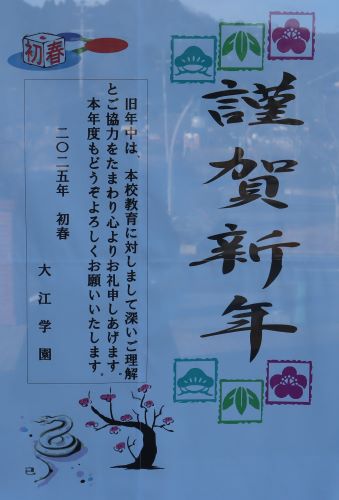 謹賀新年
初春
旧年中は、本校教育に対しまして深いご理解
とご協力をたまわり心よりお礼申しあげます。
本年度もどうぞよろしくお願いいたします。
二〇二五年 初春
大江学園
巳